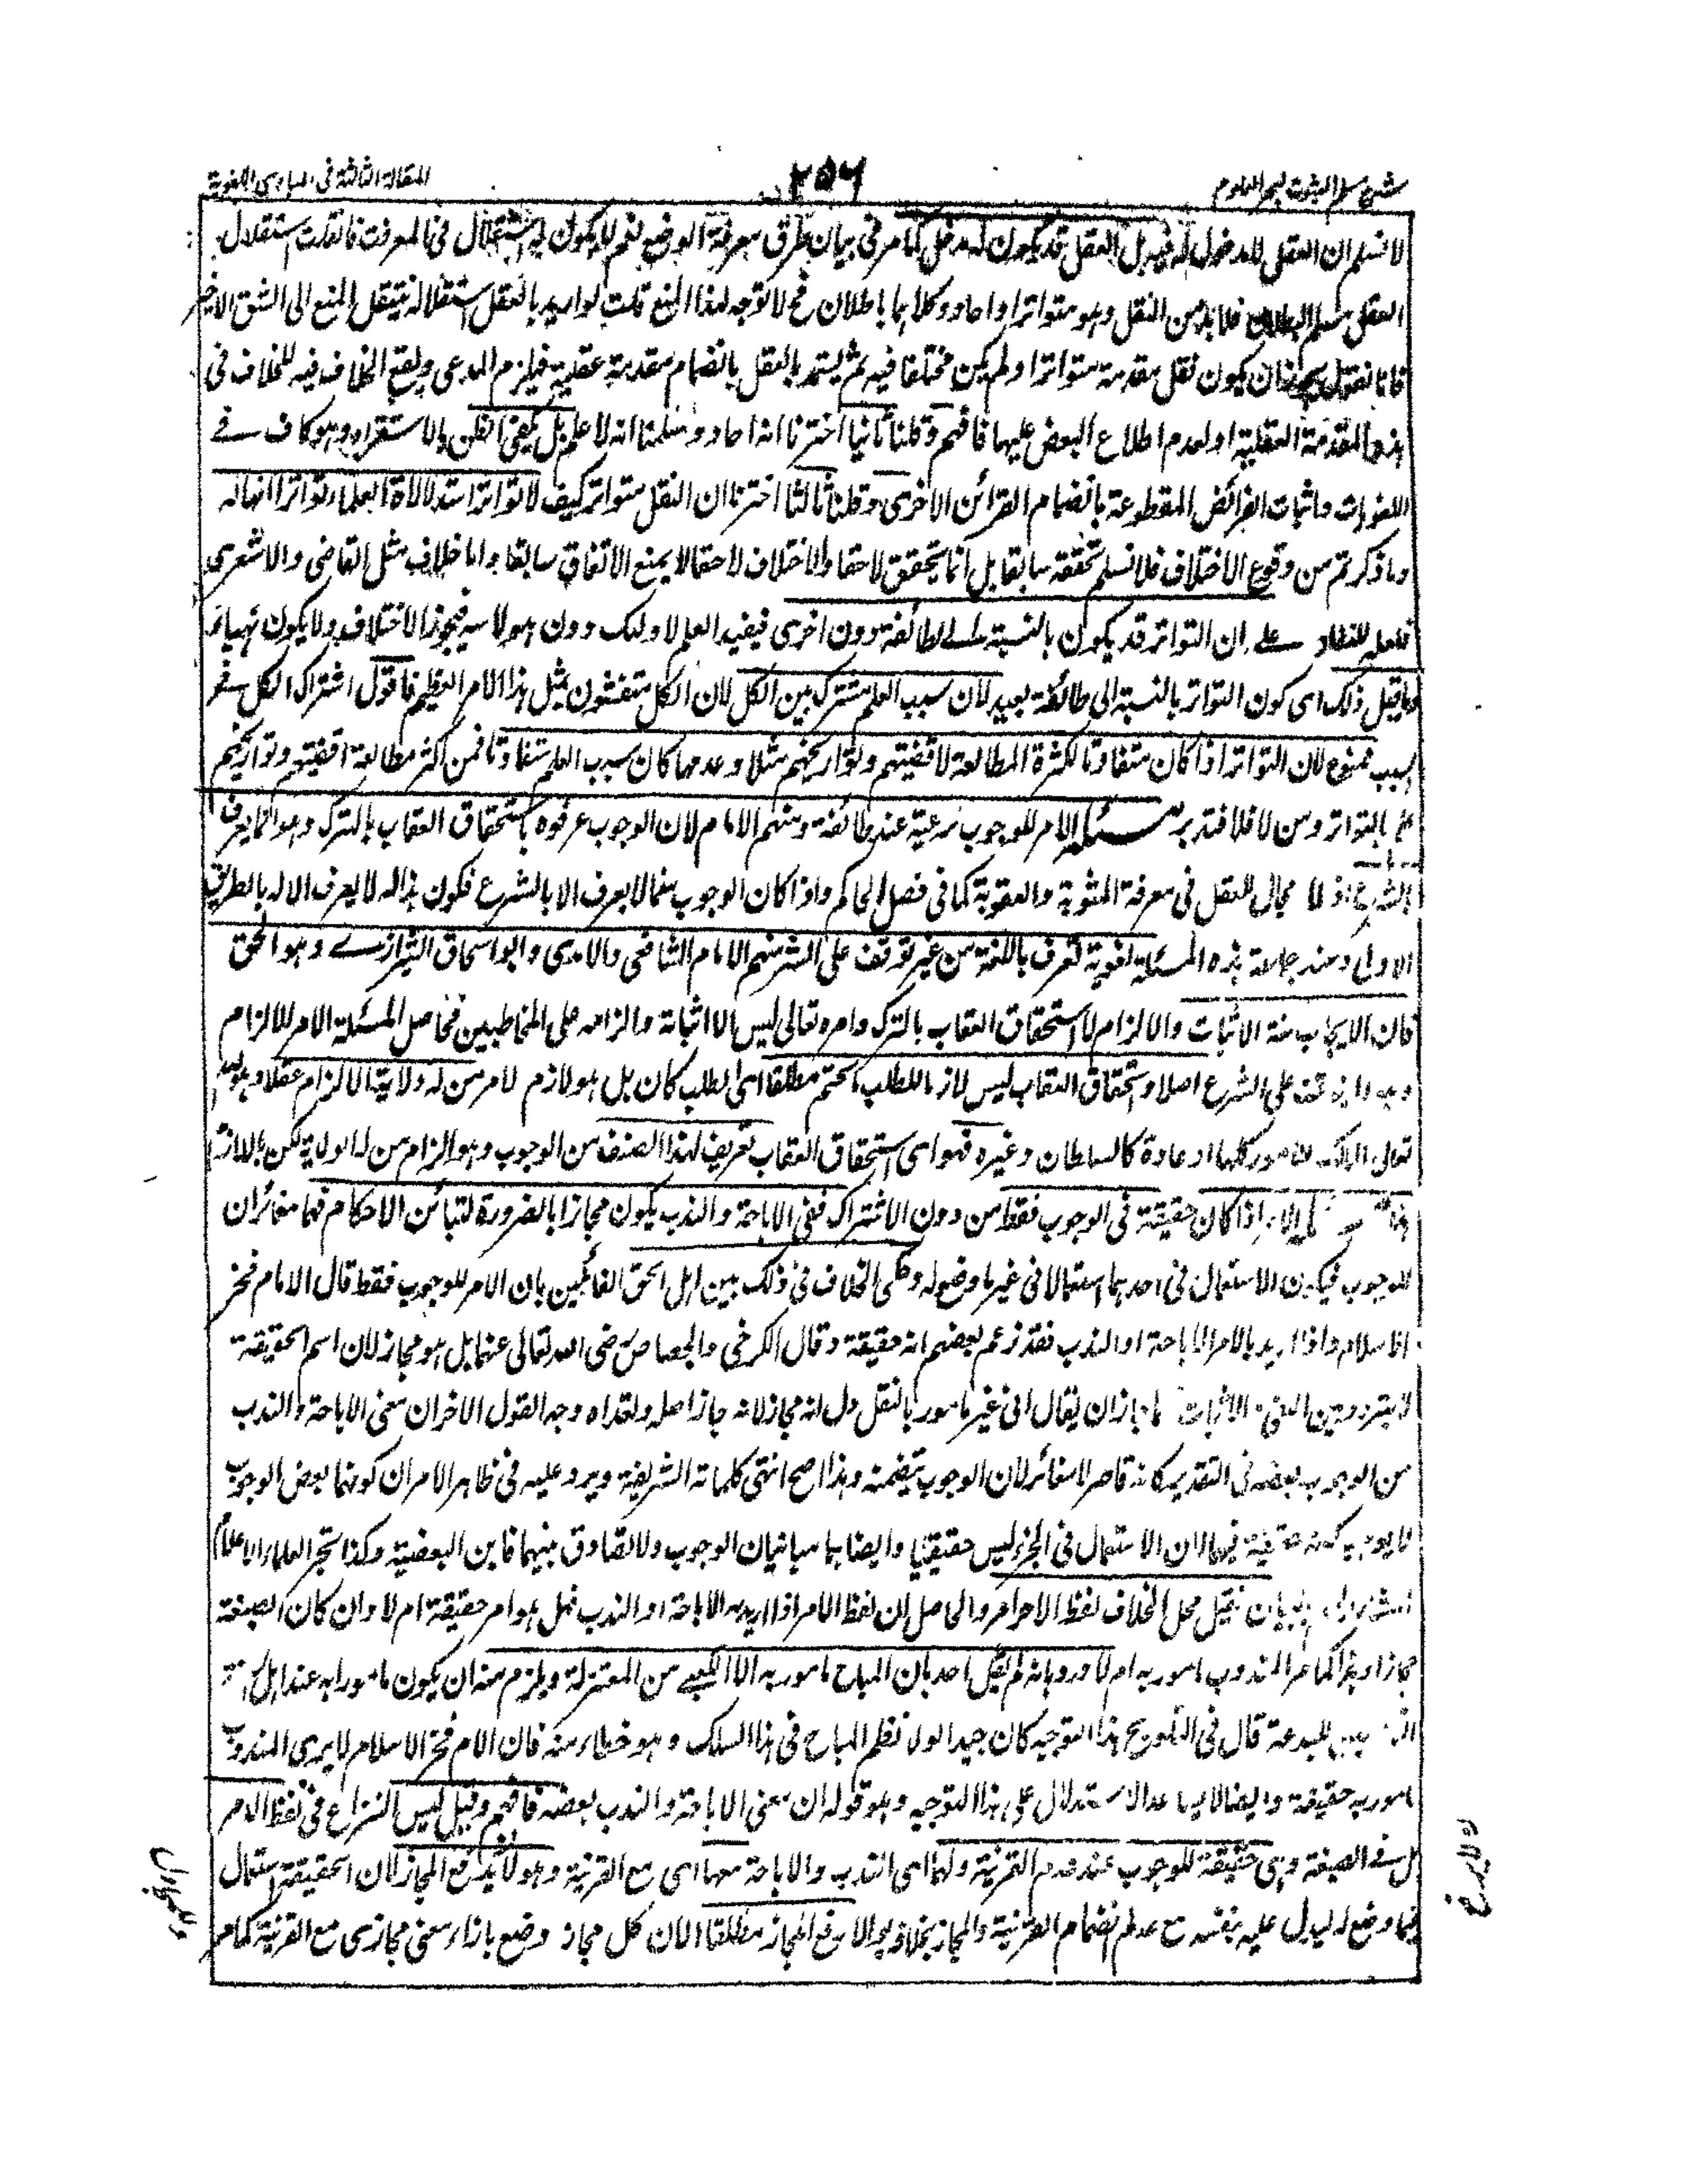 شرح مسلم الثبوت لبحر العلوم
٢٥٦
المقالة الثالثة فى المبادى اللغوية
لا نسلم ان العقل لا مدخول له فيه بل العقل قد يكون له مدخل كما مر فى بيان طرق معرفة الوضع نعم لا يكون له استقلال فى المعرفت فان قلت استقلال
العقل مسلم البطلان فلا بد من النقل وهو متواتر او احاد وكلاهما باطلان فح لا توجه لهذا المنع قلت لو اريد بالعقل استقلاله ينتقل المنع الى الشق الاخير
فانا نقول يجوز ان يكون نقل مقدمة متواترا ولم يكن مختلفا فيه ثم يستمد بالعقل بانضمام مقدمة عقلية فيلزم المدعى ويقع الخلاف فيه للخلاف فى
هذه المقدمة العقلية او لعدم اطلاع البعض عليها فافهم وقلنا ثانيا اخترنا انه احاد وسلمنا انه لا علم بل يكفى الظن والاستقراء وهو كاف فى
اللغويات واثبات الفرائض المقطوعة بانضمام القرائن الاخرى وقلنا ثالثا اخترنا ان النقل متواتر كيف لا تواتر استدلالات العلماء تواترا انها له
وما ذكرتم من وقوع الاختلاف فلا نسلم تحققه سابقا بل انما يتحقق لاحقا والاختلاف لاحقا لا يمنع الاتفاق سابقا واما خلاف مثل القاضى والاشعرى
فلعله على ان التواتر قد يكون بالنسبة الى طائفة دون اخرى فيفيد العلم لاولئك دون هولاء فيجوز الاختلاف ولا يكون بهتانا
وما قيل ذلك اى كون التواتر بالنسبة الى طائفة بعيد لان سبب العلم مشترك بين الكل لان الكل متفتشون بمثل هذا الامر العظيم فاقول اشتراك الكل فى
السبب ممنوع لان التواتر اذا كان متفاوتا لكثرة المطالعة لاقضيتهم وتواريخهم مثلا وعدمها كان سبب العلم متفاوتا فمن اكثر مطالعة اقضيتهم وتواريخهم
علم بالتواتر ومن لا فلا فتدبر مسئلة الامر للوجوب شرعية عند طائفة ومنهم الامام لان الوجوب عرفوه باستحقاق العقاب بالترك وهو انما يعرف
بالشرع اذ لا مجال للعقل فى معرفة المثوبة والعقوبة كما فى فصل الحاكم واذا كان الوجوب مما لا يعرف الا بالشرع فكون هذا له لا يعرف الا به بالطريق
الاولى وعند جماعة هذه المسئلة لغوية تعرف باللغة من غير توقف على الشرع منهم الامام الشافعى والامدى وابو اسحاق الشيرازى وهو الحق
فان الايجاب لغة الاثبات والالزام لا استحقاق العقاب بالترك وامره تعالى ليس الا اثباته والزامه على المخاطبين فحاصل المسئلة الامر للالزام
على الشرع اصلا واستحقاق العقاب ليس لازما للطلب الحتم مطلقا اى طلب كان بل هو لازم لامر من له ولاية الالزام عقلا
تعالى المالك للامور كلها او عادة كالسلطان وغيره فهو اى استحقاق العقاب تعريف لهذا الصنف من الوجوب وهو الزام من له الولاية لكن باللازم
الامر اذا كان حقيقة فى الوجوب فقط من دون الاشتراك ففى الاباحة والندب يكون مجازا بالضرورة لتبائن الاحكام فهما مغائران
للوجوب فيكون الاستعمال فى احدهما استعمالا فى غير ما وضع له وحكى الخلاف فى ذلك بين اهل الحق القائلين بان الامر للوجوب فقط قال الامام فخر
الاسلام واذا اريد بالامر الاباحة او الندب فقد زعم بعضهم انه حقيقة وقال الكرخى والجصاص رضى الله تعالى عنهما بل هو مجاز لان اسم الحقيقة
لا يتردد بين النفى والاثبات فلما جاز ان يقال انى غير مامور بالنفل دل انه مجاز لانه جاز اصله وتعداه وجه القول الاخر ان معنى الاباحة والندب
من الوجوب بعضه فى التقدير كانه قاصر لا مغائر لان الوجوب يتضمنه وهذا اصح انتهى كلماته الشريفة ويرد عليه فى ظاهر الامر ان كونهما بعض الوجوب
لا يوجب كونه حقيقة فيهما لان الاستعمال فى الجزء ليس حقيقيا وايضا هما مبائنان للوجوب ولا تصادق بينهما فاين البعضية وكذا تحير العلماء الاعلام
فقيل محل الخلاف لفظ الامر والحاصل ان لفظ الامر اذا اريد به الاباحة او الندب فهل هو امر حقيقة ام لا وان كان الصيغة
مجازا وهذا كما مر المندوب مامور به ام لا ورد بانه لم يقل احد بان المباح مامور به الا الكعبى من المعتزلة ويلزم منه ان يكون مامورا به عند اهل
قال فى التلويح هذا التوجيه كان جيدا لولا نظم المباح فى هذا السلك وهو خطاء منه فان الامام فخر الاسلام لا يرى المندوب
مامور به حقيقة وايضا لا يساعد الاستدلال على هذا التوجيه وهو قوله ان معنى الاباحة والندب بعضه فافهم وقيل ليس النزاع فى لفظ الامر
بل فى الصيغة وهى حقيقة للوجوب عند عدم القرينة ولهما اى الندب والاباحة معها اى مع القرينة وهو لا يدفع المجاز لان الحقيقة استعمال
فيما وضع له ليدل عليه بنفسه مع عدم انضمام القرينة والمجاز بخلافه والا رفع المجاز مطلقا لان كل مجاز وضع بازاء معنى مجازى مع القرينة كما مر